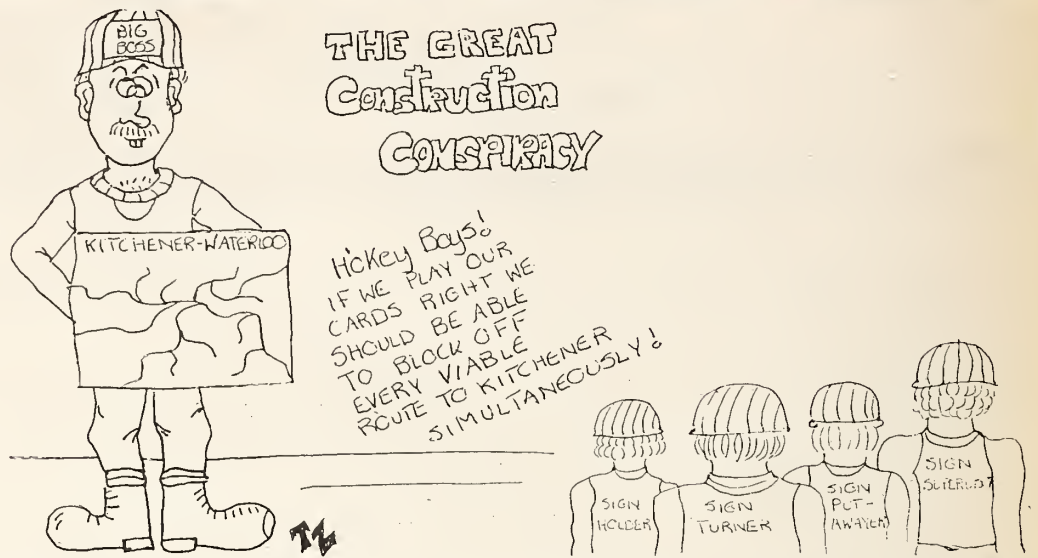 BIG
BOSS
THE GREAT
Construction
CONSPIRACY
KITCHENER-WATERLOO
Hokey Boys!
IF WE PLAY OUR
CARDS RIGHT WE
SHOULD BE ABLE
TO BLOCK OFF
EVERY VIABLE
ROUTE TO KITCHENER
SIMULTANEOUSLY!
SIGN
HOLDER
SIGN
TURNER
SIGN
PUT-
AWAYER
SIGN
TZ